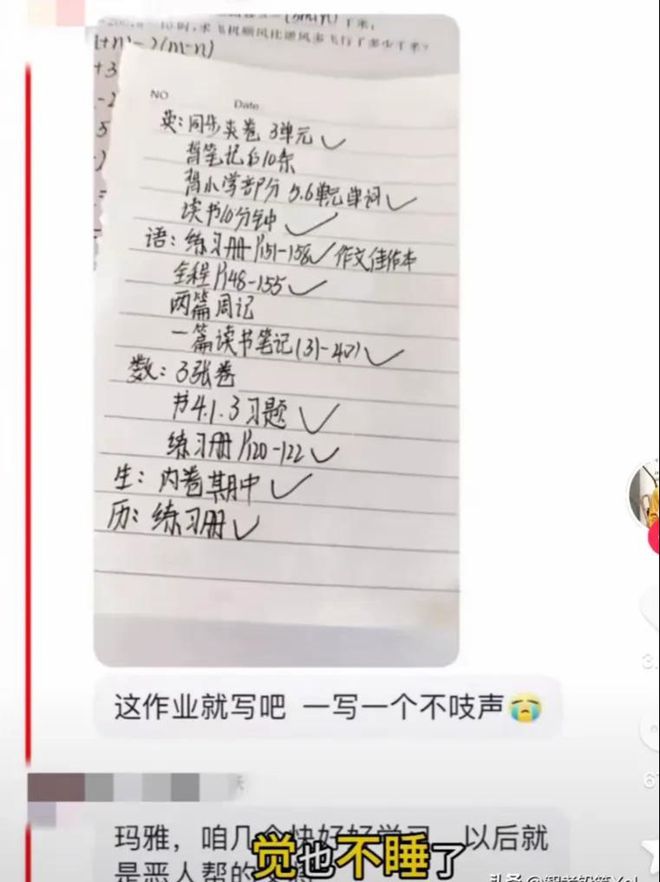 时,求飞机顺风比逆风多飞行了多少千米?
NO
Date
英:同步夹卷 3单元✓
背笔记后10条
背小学部分 5.6单元单词✓
读书10分钟✓
语:练习册P151-158✓ 作文佳作本
全程P148-155✓
两篇周记
一篇读书笔记(31-40)✓
数:3张卷
书4.1.3习题✓
练习册P120-122✓
生:内卷期中✓
历:练习册✓
这作业就写吧 一写一个不吱声😭
玛雅,咱几个快好好学习 以后就
是恶人帮的
觉也不睡了
头条